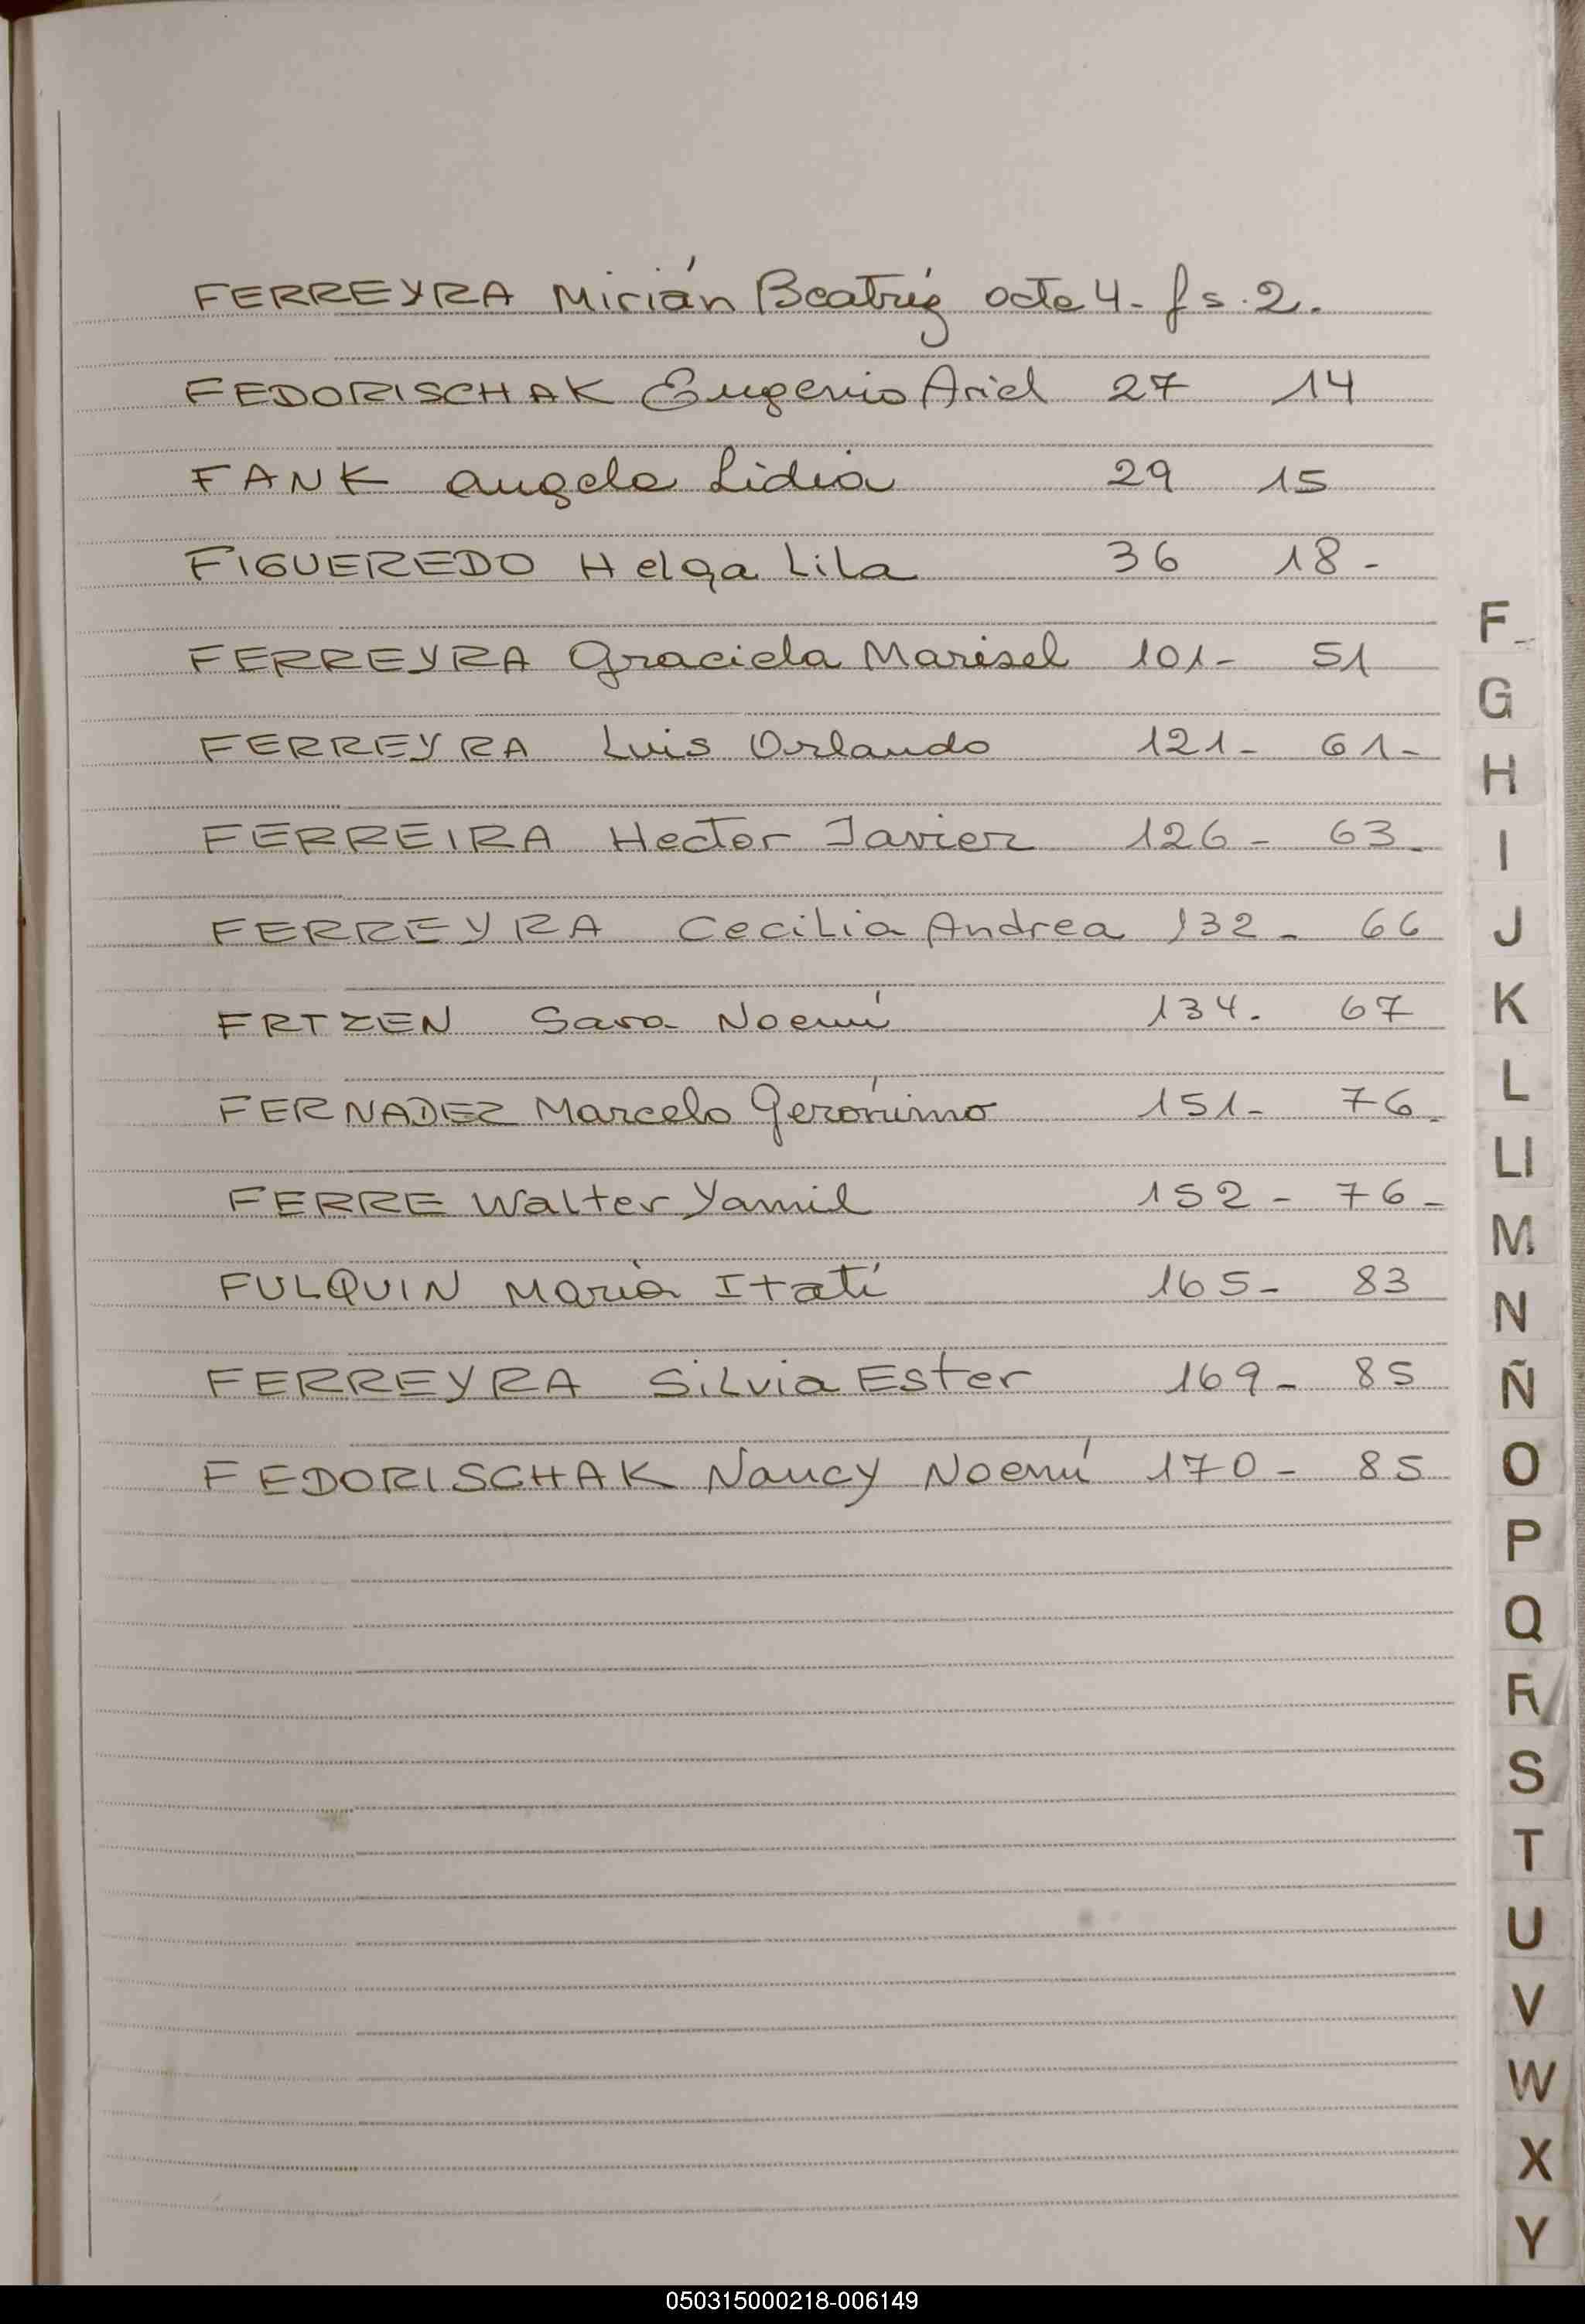 FERREYRA Mirián Beatríz acta 4- fs. 2.
FEDORISCHAK Eugenio Ariel 27 14
FANK Angela Lidia 29 15
FIGUEREDO Helga Lila 36 18-
FERREYRA Graciela Marisel 101- 51
FERREYRA Luis Orlando 121- 61-
FERREIRA Hector Javier 126- 63-
FERREYRA Cecilia Andrea 132- 66
FRTZEN Sara Noemí 134. 67
FERNADEZ Marcelo Gerónimo 151- 76-
FERRE Walter Yamil 152- 76-
FULQUIN María Itatí 165- 83
FERREYRA Silvia Ester 169- 85
FEDORISCHAK Nancy Noemí 170- 85
F
G
H
I
J
K
L
Ll
M
N
Ñ
O
P
Q
R
S
T
U
V
W
X
Y
050315000218-006149